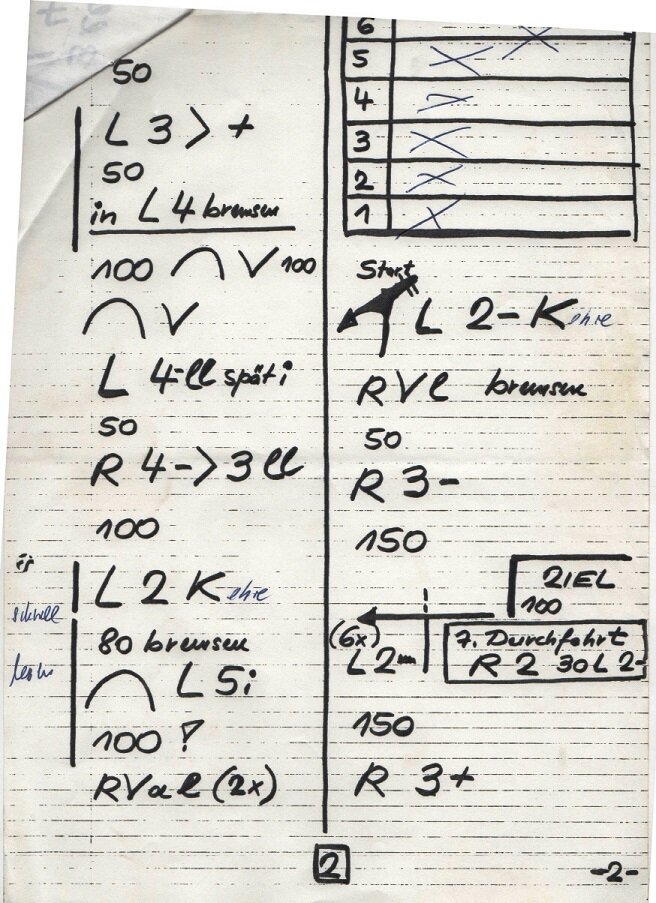 50
L 3 > +
50
in L 4 bremsen
100 ⌒ V 100
⌒ V
L 4-ll spät i
50
R 4 -> 3 ll
100
L 2 Kehre
schnell
80 bremsen
⌒ L 5 i
100 !
RVal (2x)
6
5
4
3
2
1
Start
L 2- Kehre
RVl bremsen
50
R 3-
150
ZIEL
100
(6x)
L 2m
7. Durchfahrt
R 2 30 L 2-
150
R 3+
2
-2-